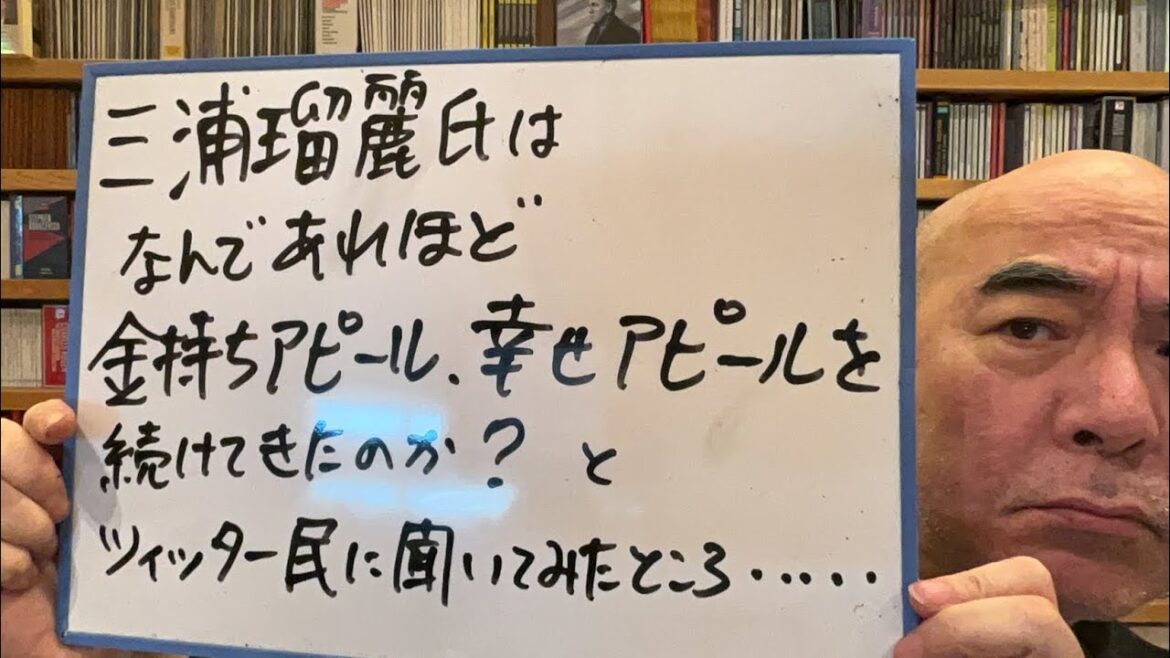 三浦瑠麗氏は
なんであれほど
金持ちアピール、幸せアピールを
続けてきたのか？と
ツィッター民に聞いてみたところ・・・・・